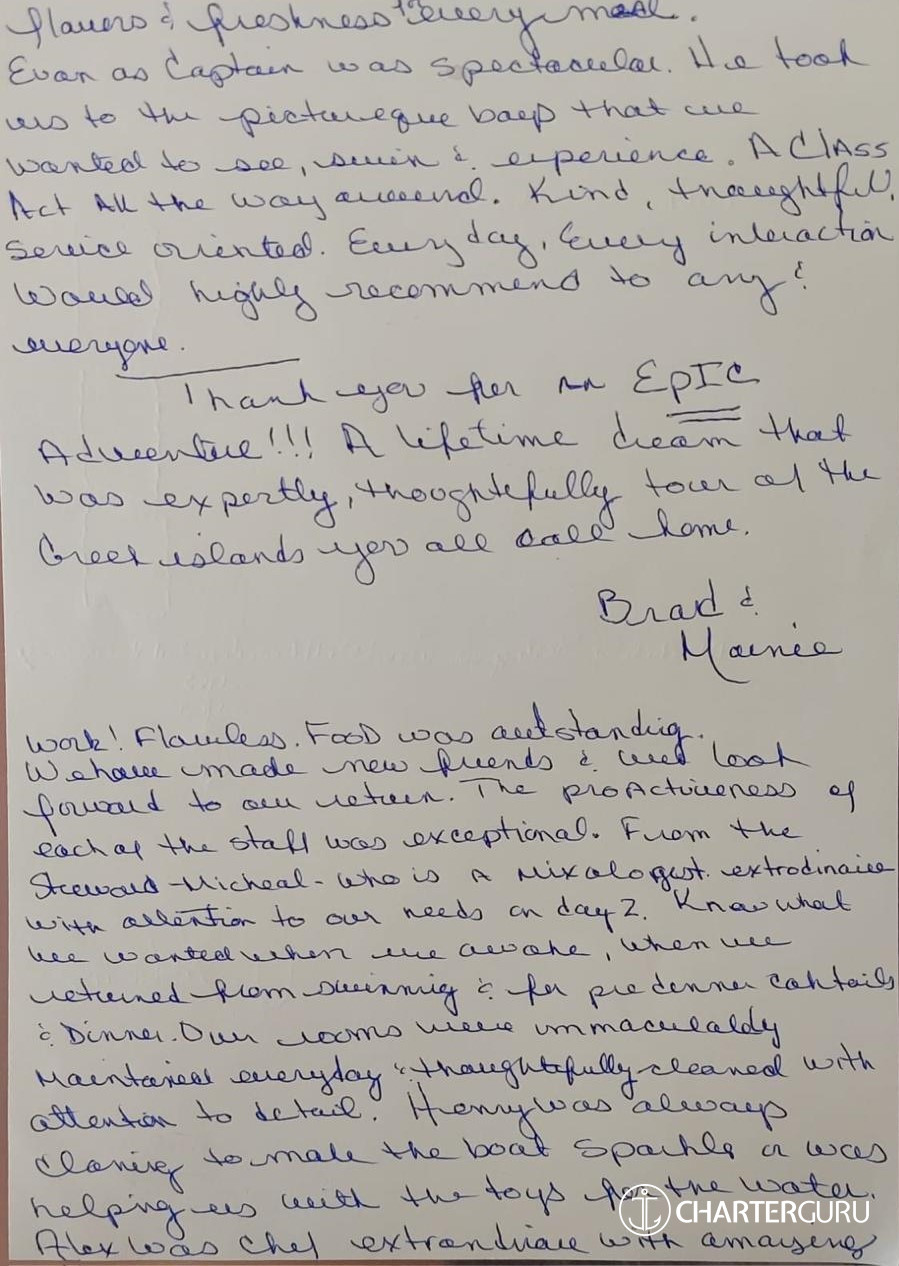 flavors & freshness every meal.
Evan as Captain was spectacular. He took
us to the picturesque bays that we
wanted to see, swim & experience. A Class
Act All the way around. Kind, thoughtful,
Service oriented. Every day, Every interaction
Would highly recommend to any &
everyone.
Thank you for an EpIC
Adventure!!! A lifetime dream that
was expertly, thoughtfully tour of the
Greek islands you all call home.
Brad &
Marnie
Work! Flawless. Food was outstanding.
We have made new friends & look
forward to our return. The proActiveness of
each of the staff was exceptional. From the
Steward-Micheal-who is A Mixologist extrodinaire
with attention to our needs on day 2. Know what
we wanted when we awoke, when we
returned from swimming & for predinner cocktails
& Dinner. Our rooms were immaculaldy
Maintained everyday & thoughtfully cleaned with
attention to detail. Henry was always
cleaning to make the boat sparkle or was
helping us with the toys for the water.
Alex was Chef extrordinaire with amazing
CHARTERGURU